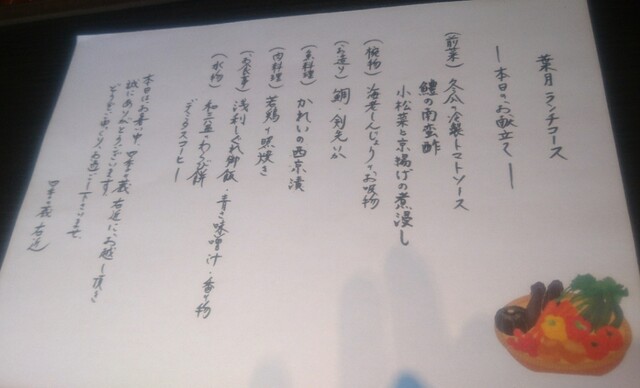 葉月ランチコース
― 本日のお献立て ―
(前菜) 冬瓜の冷製トマトソース
鱧の南蛮酢
小松菜と京揚げの煮浸し
(椀物) 海老しんじょうのお吸物
(お造り) 鯛・剣先いか
(魚料理) かれいの西京漬
(肉料理) 若鶏の照焼き
(お食事) 浅利しぐれ御飯・青さ味噌汁・香の物
(水物) 和三盆わらび餅
デミタスコーヒー
本日は、お暑い中、四季の蔵 右近に、お越し頂き
誠にありがとうございます。
どうぞごゆっくりお過ごし下さいませ。
四季の蔵 右近